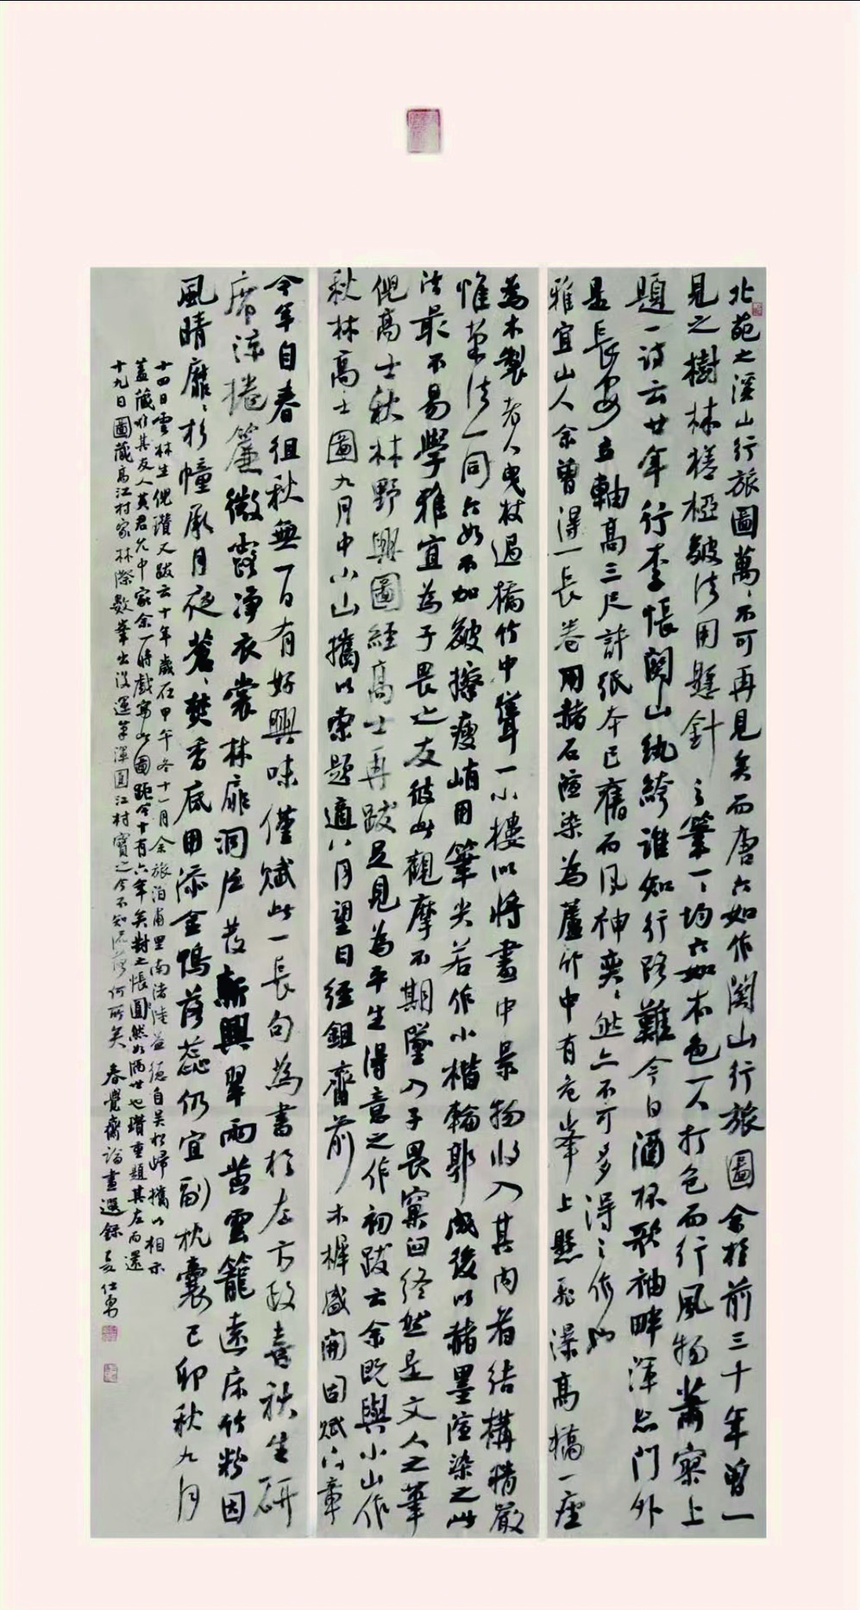 北苑之溪山行旅圖萬〻不可再見矣而唐六如作關山行旅圖余於前三十年曾一
見之樹林槎枒皴法用懸針之筆一一均六如本色一人打包而行風物蕭寥上
題一詩云廿年行李悵關山紈絝誰知行路難今日酒杯歌袖畔渾忘門外
是長安立軸高三尺許紙本已舊而風神奕〻然亦不可多得之作也
雅宜山人余曾得一長卷用赭石渲染為蘆竹中有危峯上懸飛瀑高橋一座
為木製老人曳杖過橋竹中聳一小樓似將畫中景物收入其內者結構精嚴
惟筆法一同六如不加皴擦瘦峭用筆尖若作小楷輪郭成後以赭墨渲染之此
法最不易學雅宜為子畏之友彼此觀摩不期墜入子畏窠臼終然是文人之筆
倪高士秋林野興圖經高士再跋足見為平生得意之作初跋云余既與小山作
秋林高士圖九月中小山攜以索題適八月望日經鉏齋前木樨盛開因賦六章
今年自春徂秋無一日有好興味僅賦此一長句為書於左方政喜秋生研
席涼捲簾微露淨衣裳林扉洞戶發新興翠雨黃雲籠遠床竹粉因
風晴靡〻杉幢承月夜蒼〻焚香底用添金鴨落蕊仍宜副枕囊己卯秋九月
十四日雲林生倪瓚又跋云十年歲在甲午冬十一月余旅泊甫里南渚陸益德自吳松歸攜以相示
蓋藏於其友人黃君允中家余一時戲寫此圖距今十有六年矣對之悵然如隔世也瓚重題其左而還
十九日圖藏高江村家林際數峯出沒運筆渾圓江村寶之今不知流落何所矣 春覺齋論畫選錄 仕勇